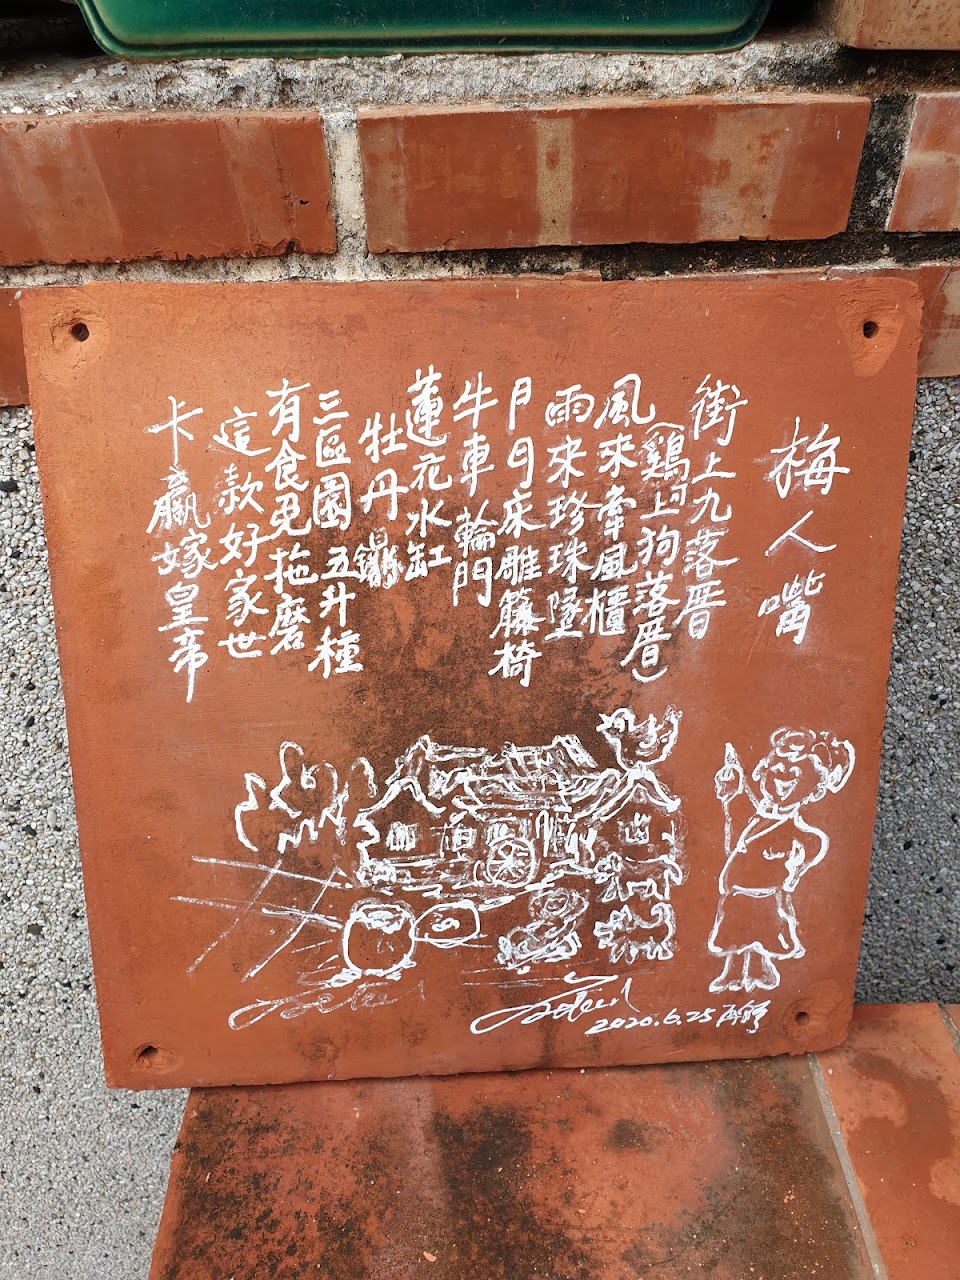 梅人嘴
街上九落厝
(鷄上狗落厝)
風來牽風櫃
雨來珍珠墜
門月床雕籐椅
牛車輪門
蓮花水缸
牡丹
三區園五升種
有食免拖磨
這款好家世
卡贏嫁皇帝
2020.6.25